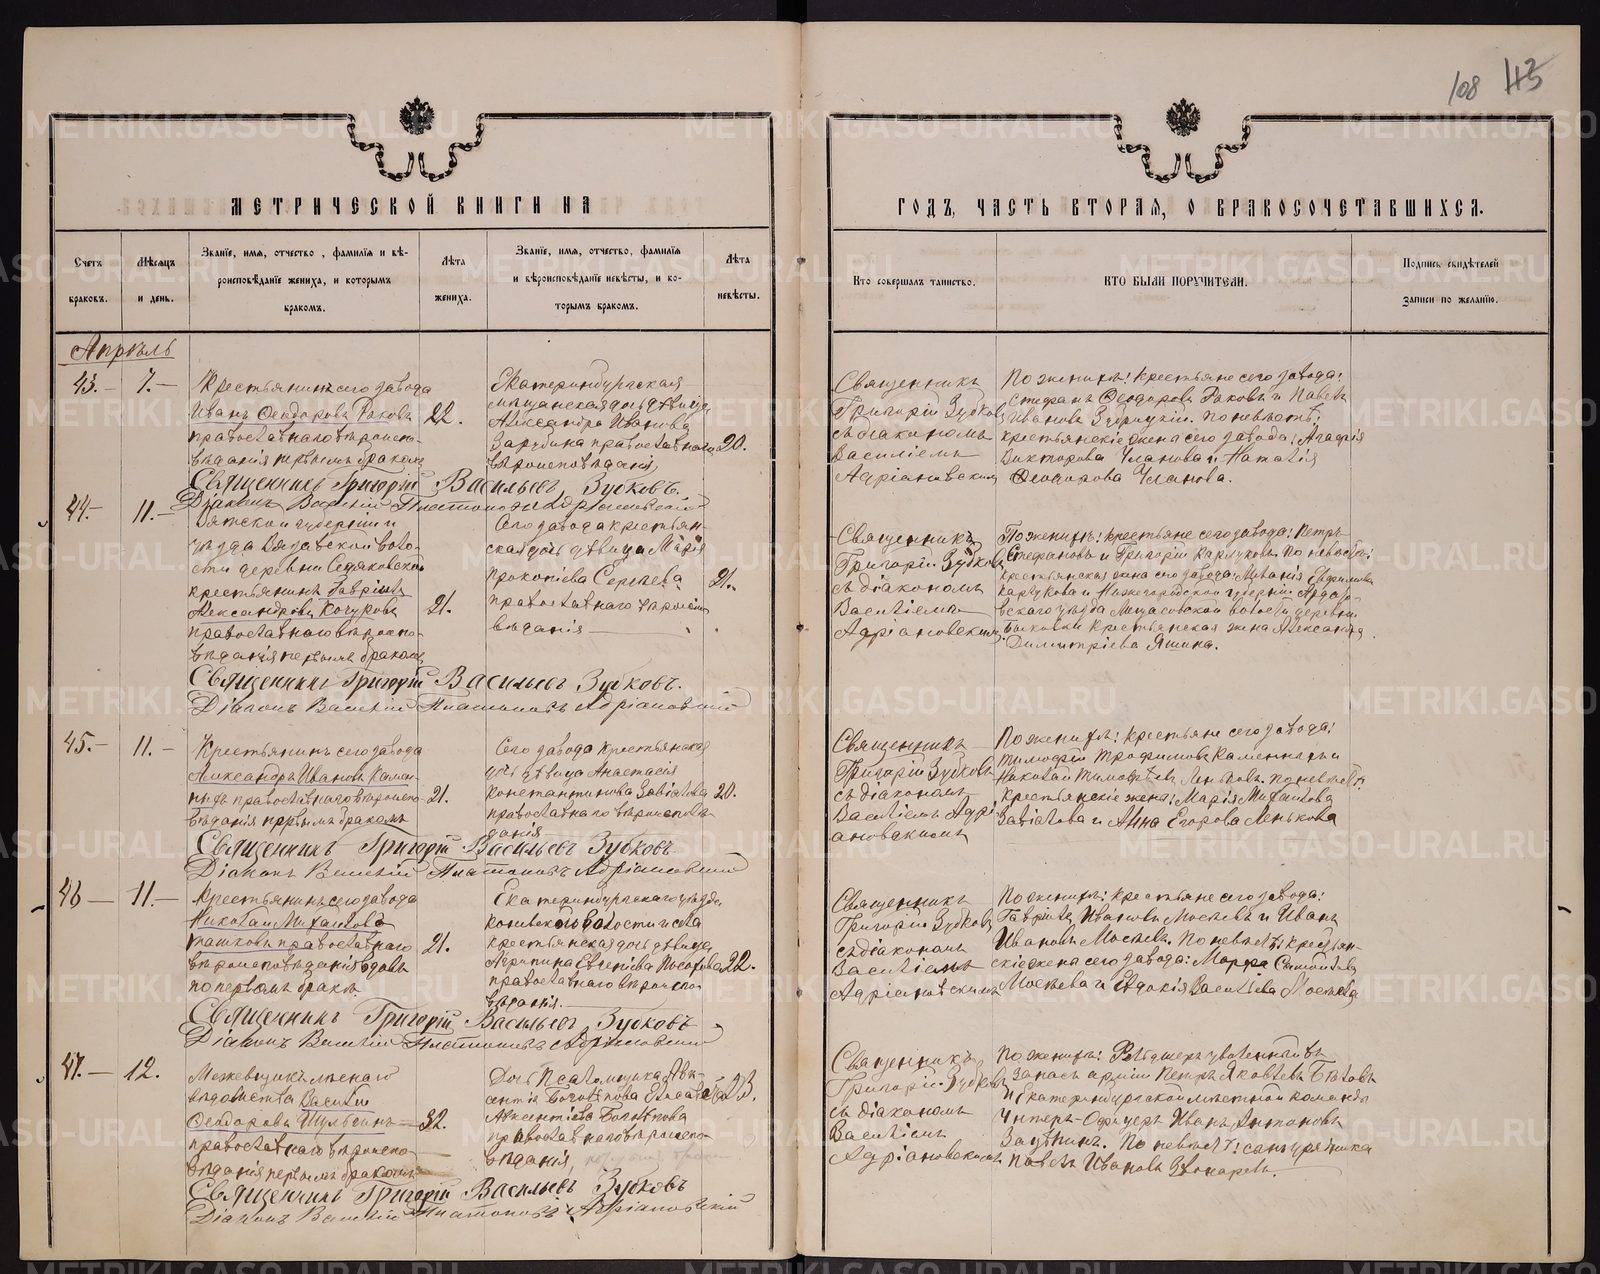 108 115
МЕТРИЧЕСКОЙ КНИГИ НА
ГОДЪ, ЧАСТЬ ВТОРАЯ, О БРАКОСОЧЕТАВШИХСЯ.
Счетъ браковъ.
Мѣсяцъ и день.
Званіе, имя, отчество, фамилія и вѣ-
роисповѣданіе жениха, и которымъ
бракомъ.
Лѣта жениха.
Званіе, имя, отчество, фамилія
и вѣроисповѣданіе невѣсты, и ко-
торымъ бракомъ.
Лѣта невѣсты.
Кто совершалъ таинство.
КТО БЫЛИ ПОРУЧИТЕЛИ.
Подпись свидѣтелей
записи по желанію.
Апрѣль
43. — 7. —
Крестьянинъ сего завода
Иванъ Ѳеодоровъ Раковъ
православнаго вѣроиспо-
вѣданія первымъ бракомъ
22.
Екатеринбургская
мѣщанская дочь дѣвица
Александра Иванова
Зарубина православнаго
вѣроисповѣданія
20.
Священникъ
Григорій Зубковъ
съ діакономъ
Василіемъ
Адріановскимъ
По женихѣ: крестьяне сего завода:
Стефанъ Ѳеодоровъ Раковъ и Павелъ
Ивановъ По невѣстѣ:
крестьянскіе жены сего завода:
Викторова Уланова и Наталія
Ѳеодорова Уланова.
Священникъ Григорій Васильевъ Зубковъ.
Діаконъ Василій Платоновъ Адріановскій
44. — 11. —
Вятской губерніи и
уѣзда волос-
сти деревни
крестьянинъ Гавріилъ
Александровъ Кочуровъ
православнаго вѣроиспо-
вѣданія первымъ бракомъ
21.
Сего завода крестьян-
ская дочь дѣвица Марія
Прокопіева Сергѣева
православнаго вѣроиспо-
вѣданія —
21.
Священникъ
Григорій Зубковъ
съ діакономъ
Василіемъ
Адріановскимъ
По женихѣ: крестьяне сего завода: Петръ
Стефановъ и Григорій Карлуковъ. По невѣстѣ:
крестьянская жена сего завода: Меланія Ефимова
Карлукова и Нижегородской губерніи Ардато-
вскаго уѣзда волости деревни
Быковки крестьянская жена Александра
Димитріева Яшина.
Священникъ Григорій Васильевъ Зубковъ.
Діаконъ Василій Платоновъ Адріановскій
45. — 11. —
Крестьянинъ сего завода
Александръ Ивановъ Камен-
ныхъ православнаго вѣроиспо-
вѣданія первымъ бракомъ
21.
Сего завода крестьянская
дочь дѣвица Анастасія
Константинова Завіалова
православнаго вѣроисповѣ-
данія
20.
Священникъ
Григорій Зубковъ
съ діакономъ
Василіемъ Адрі-
ановскимъ
По женихѣ: крестьяне сего завода:
Тимофей Трофимовъ Каменныхъ и
Николай Тимофѣевъ Леньковъ. По невѣстѣ:
крестьянскіе жены: Марія Михайлова
Завіалова и Анна Егорова Ленькова
Священникъ Григорій Васильевъ Зубковъ
Діаконъ Василій Платоновъ Адріановскій
46 — 11. —
Крестьянинъ сего завода
Николай Михайловъ
Ташковъ православнаго
вѣроисповѣданія вдовъ
по первомъ бракѣ.
21.
Екатеринбургскаго уѣзда
волости и села
крестьянская дочь дѣвица
Агрипина Евгеніева Носырева
православнаго вѣроиспо-
вѣданія.
22.
Священникъ
Григорій Зубковъ
съ діакономъ
Василіемъ
Адріановскимъ
По женихѣ: крестьяне сего завода:
Гавріилъ Ивановъ Мосѣевъ и Иванъ
Ивановъ Мосѣевъ. По невѣстѣ: крестьян-
скіе жены сего завода: Марфа Самойлова
Мосѣева и Евдокія Васильева Мосѣева
Священникъ Григорій Васильевъ Зубковъ
Діаконъ Василій Платоновъ Адріановскій
47. — 12.
Межевщикъ лѣснаго
вѣдомства Василій
Ѳеодоровъ Шульгинъ —
православнаго вѣроиспо-
вѣданія первымъ бракомъ
32.
Дочь Псаломщика Авк-
сентія Боголѣпова Елисавета
Авксентіева Боголѣпова
православнаго вѣроиспо-
вѣданія,
23.
Священникъ
Григорій Зубковъ
съ діакономъ
Василіемъ
Адріановскимъ
По женихѣ: Фельдшеръ уволенный въ
запасъ арміи Петръ Яковлевъ Бѣловъ
и Екатеринбургской мѣстной команды
Унтеръ-Офицеръ Иванъ Антоновъ
По невѣстѣ:
Павелъ Ивановъ Звонаревъ.
Священникъ Григорій Васильевъ Зубковъ
Діаконъ Василій Платоновъ Адріановскій
METRIKI.GASO-URAL.RU